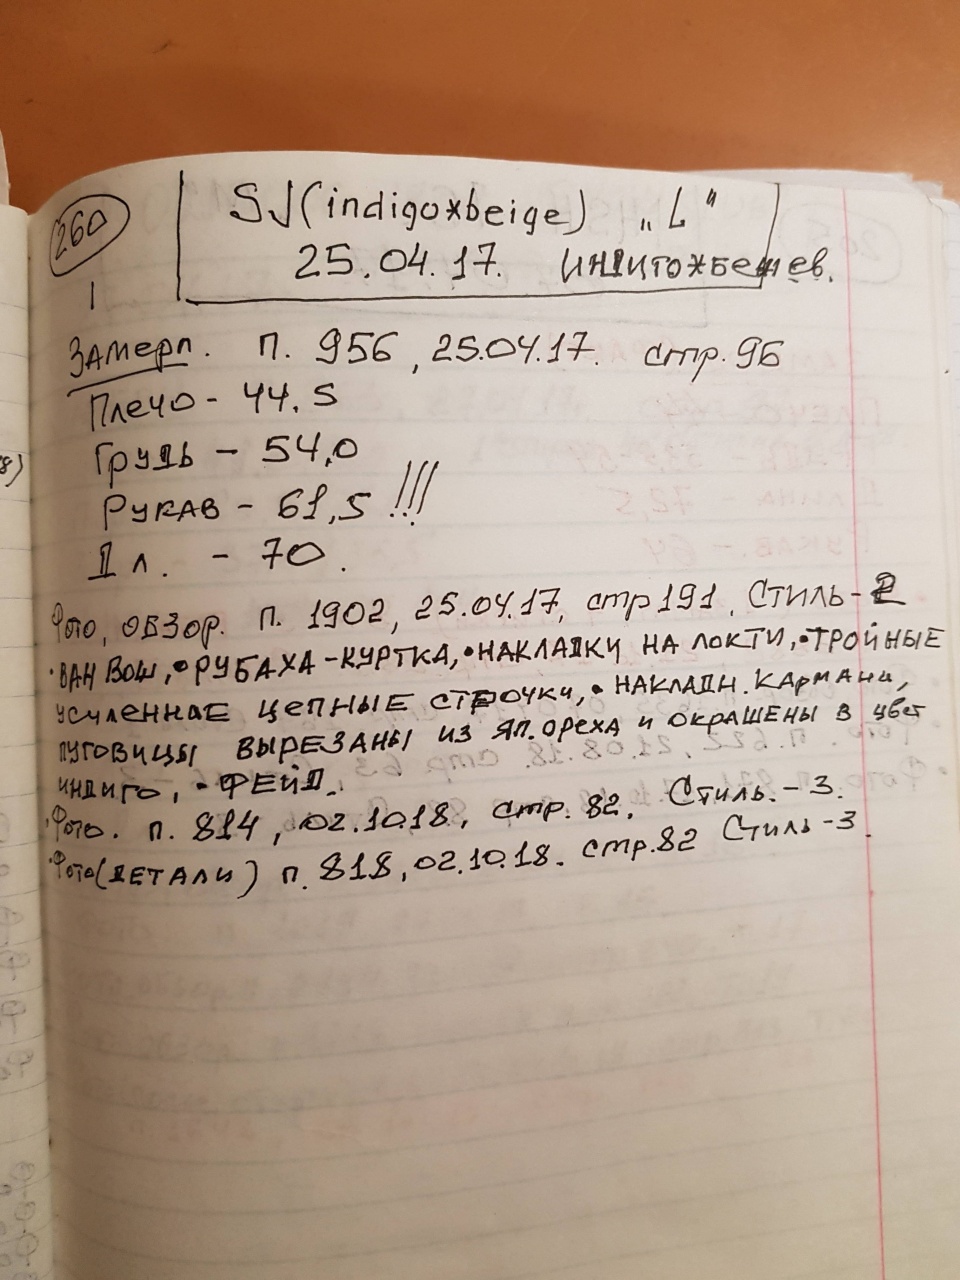 260
1
SJ (indigo×beige) „L"
25.04.17. индиго×бежев.
Замерп. п. 956, 25.04.17. стр. 96
Плечо - 44.5
Грудь - 54,0
Рукав - 61,5 !!!
Дл. - 70.
Фото, обзор. п. 1902, 25.04.17, стр 191, Стиль-2
•ван вош, •рубаха-куртка, •накладки на локти, •тройные
усиленнае цепные строчки, • накладн. кармани,
пуговицы вырезаны из яп. ореха и окрашены в цвет
индиго, • фейд.
•Фото. п. 814, 02.10.18, стр. 82. Стиль. - 3.
•Фото (детали) п. 818, 02.10.18. стр.82 Стиль-3.
8)